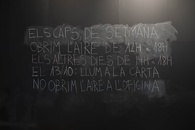 ELS CAPS DE SETMANA
OBRIM L'AIRE DE 12H - 19H
ELS ALTRES DIES DE 17H - 19H
EL LLUM A LA CARTA
NO OBRIM L'AIRE A L'OFICINA